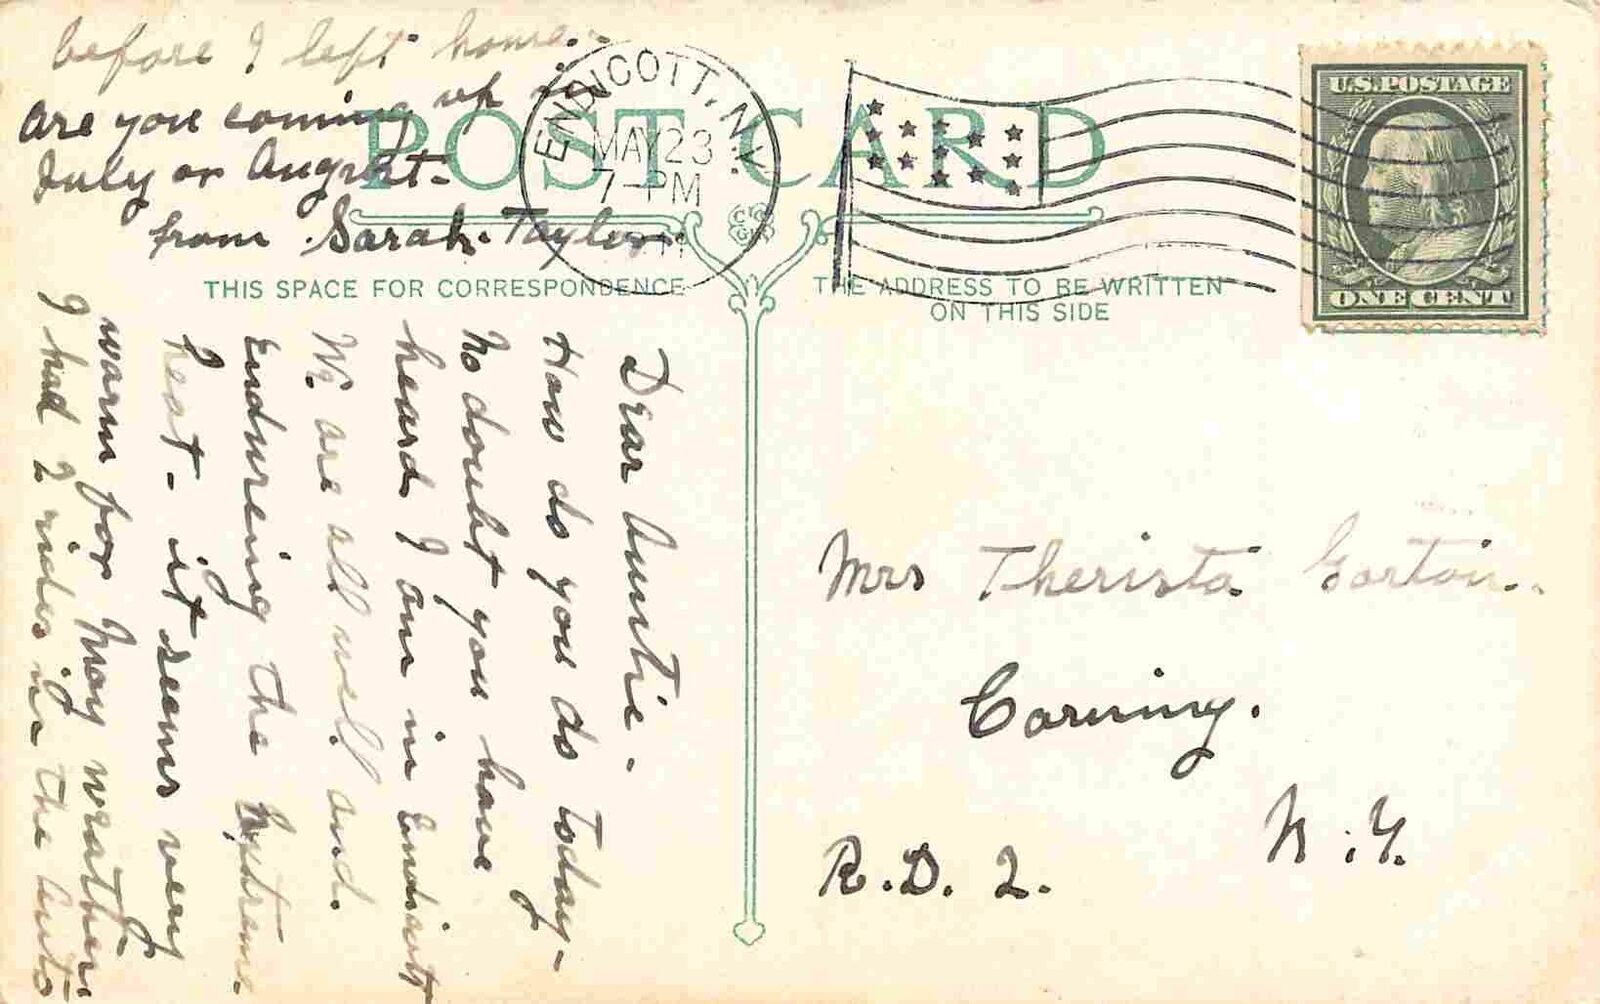 POST CARD
THIS SPACE FOR CORRESPONDENCE
THE ADDRESS TO BE WRITTEN
ON THIS SIDE
ENDICOTT, N.Y.
MAY 23
7-PM
U.S. POSTAGE
ONE CENT
Dear Auntie -
How do you do today -
No doubt you have
heard I am in Endicott
We are all well. and.
Endureing the Extreme.
heat - it seems very
warm for May weather.
I had 2 rides in the auto
before I left home. -
Are you coming up in
July or August -
from Sarah. Taylor.
Mrs Therista Gorton..
Corning.
N.Y.
R.D. 2.